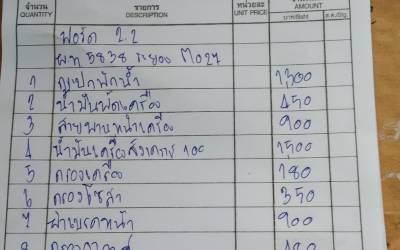 จำนวน QUANTITY รายการ DESCRIPTION หน่วยละ UNIT PRICE AMOUNT
ฟอร์ด 2.2
ผท 5838 ระยอง
1 กูเปกพักน้ำ 1300
2 น้ำมันพัดเครื่อง 450
3 สายพานหน้าเครื่อง 900
4 น้ำมันเครื่องสังเคราะห์ 100 1500
5 กรองเครื่อง 180
6 กรองโซล่า 350
7 ผ้าเบรคหน้า 900
8